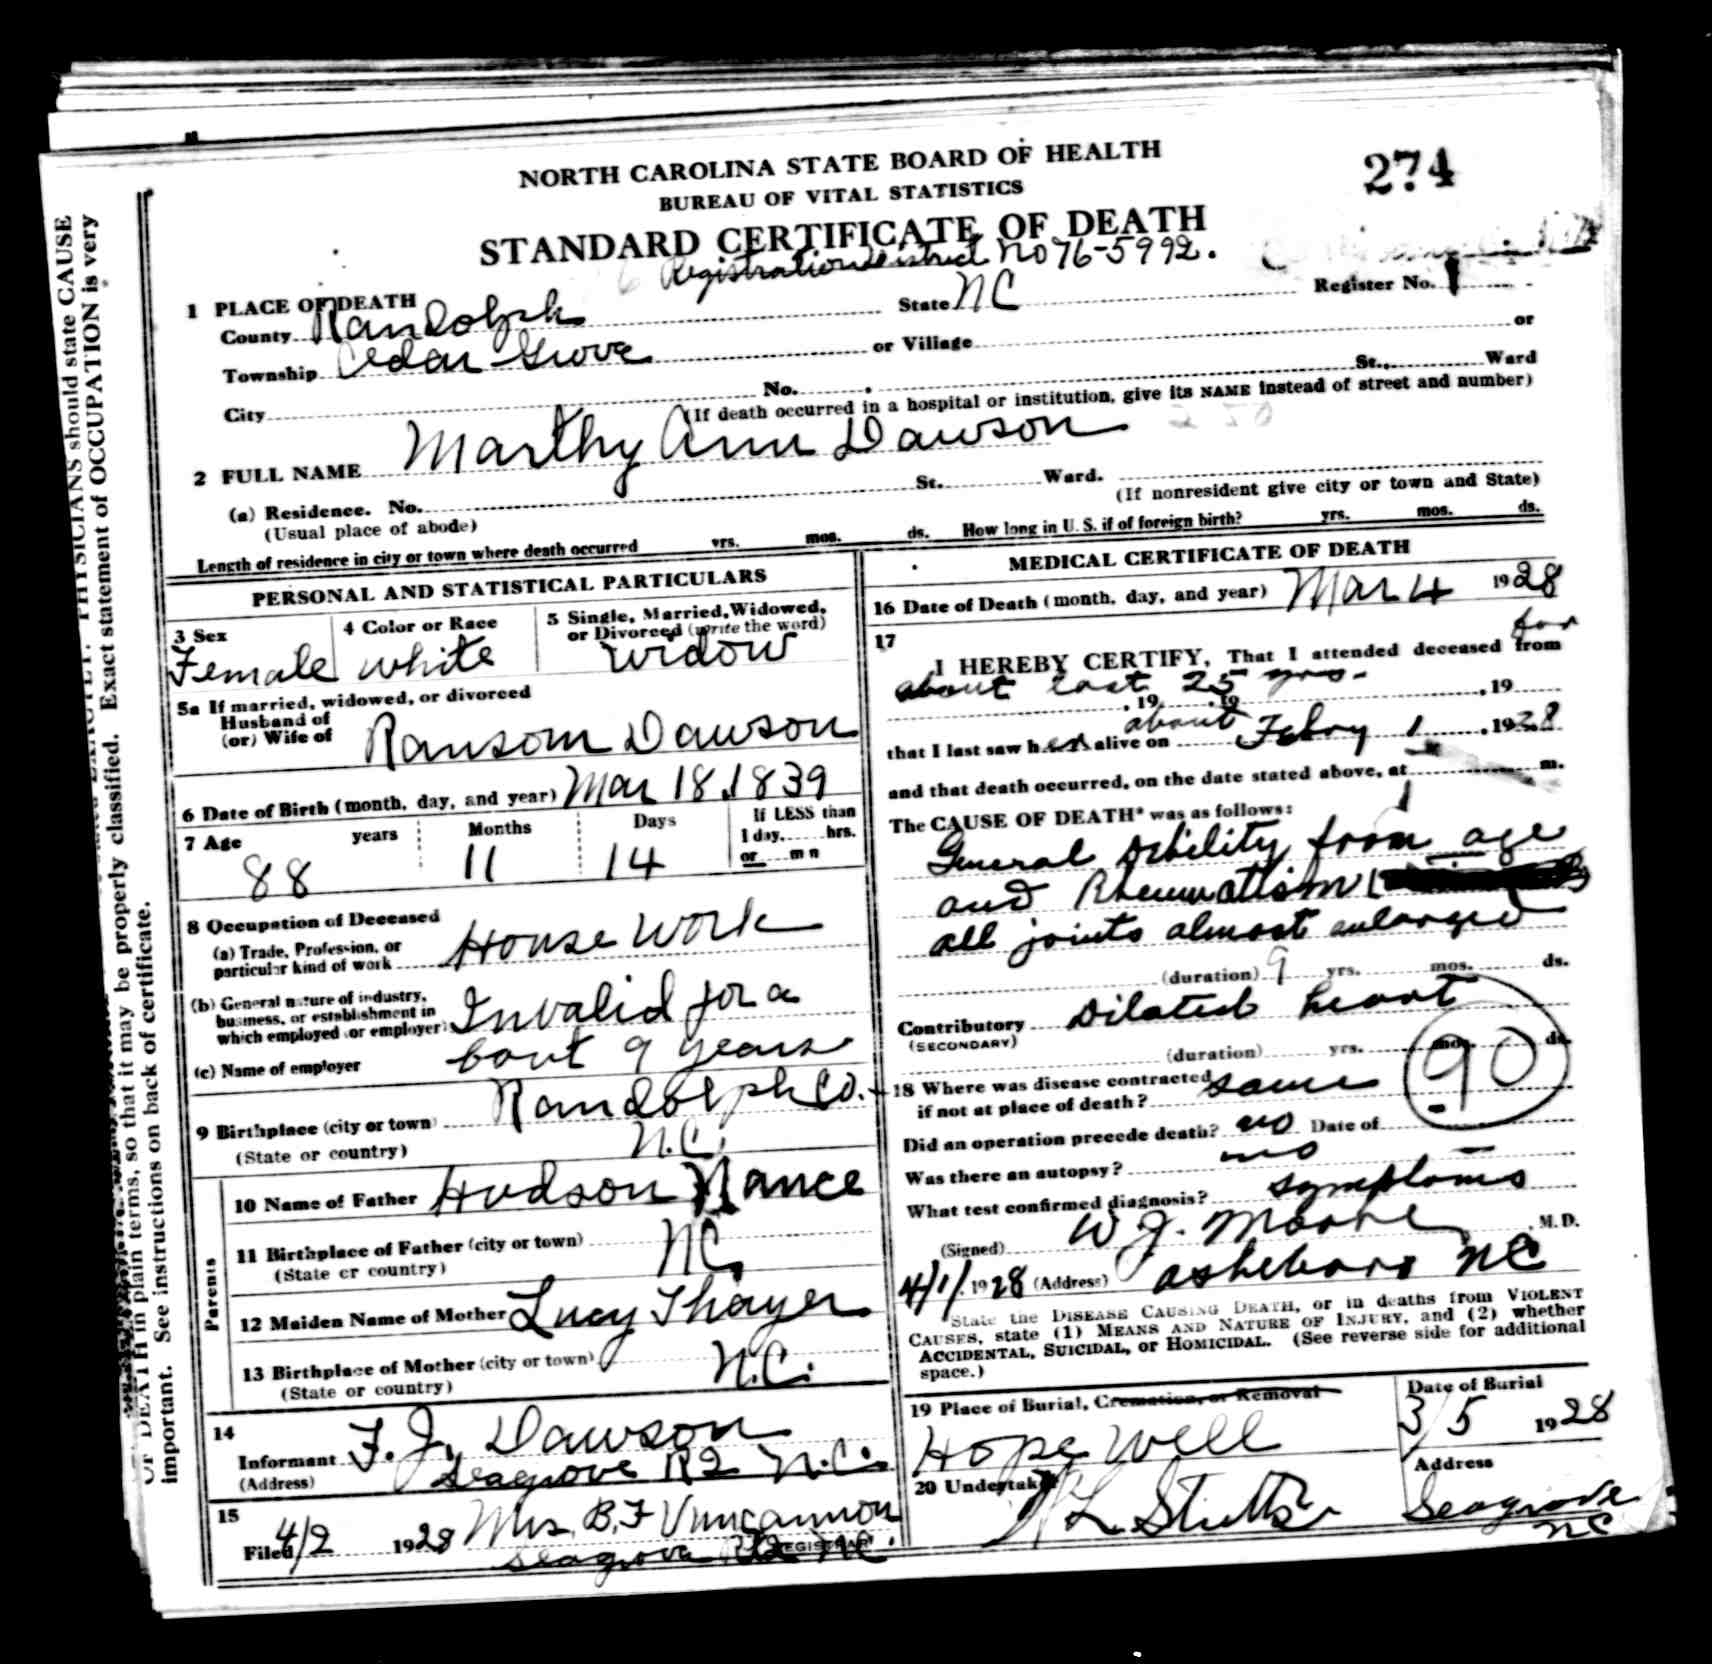 NORTH CAROLINA STATE BOARD OF HEALTH
BUREAU OF VITAL STATISTICS
274
STANDARD CERTIFICATE OF DEATH
Registration district No 76-5992.
1 PLACE OF DEATH
County Randolph State NC Register No. 1
Township Cedar Grove or Village or
City No. St., Ward
(If death occurred in a hospital or institution, give its NAME instead of street and number)
2 FULL NAME Marthy Ann Dawson
(a) Residence. No. St. Ward.
(Usual place of abode) (If nonresident give city or town and State)
Length of residence in city or town where death occurred yrs. mos. ds. How long in U. S. if of foreign birth? yrs. mos. ds.
PERSONAL AND STATISTICAL PARTICULARS
3 Sex 4 Color or Race 5 Single, Married, Widowed, or Divorced (write the word)
Female white widow
5a If married, widowed, or divorced
Husband of
(or) Wife of Ransom Dawson
6 Date of Birth (month, day, and year) Mar 18, 1839
7 Age years Months Days If LESS than
1 day, hrs.
88 11 14 or mn
8 Occupation of Deceased
(a) Trade, Profession, or
particular kind of work House Work
(b) General nature of industry,
business, or establishment in
which employed (or employer) Invalid for a
(c) Name of employer bout 9 years
9 Birthplace (city or town) Randolph Co.
(State or country) N.C.
Parents
10 Name of Father Hudson Nance
11 Birthplace of Father (city or town)
(State or country) NC.
12 Maiden Name of Mother Lucy Thayer
13 Birthplace of Mother (city or town)
(State or country) N.C.
14
Informant F. J. Dawson
(Address) Seagrove R2 N.C.
15
Filed 4/2 1928 Mrs. B. F Vuncannon
Seagrove R2 NC. REGISTRAR
MEDICAL CERTIFICATE OF DEATH
16 Date of Death (month, day, and year) Mar 4 1928
17 for
I HEREBY CERTIFY, That I attended deceased from
about last 25 yrs.
, 19 , 19 , 19
that I last saw her alive on about Febry 1, 1928
and that death occurred, on the date stated above, at m.
The CAUSE OF DEATH* was as follows:
General debility from age
and Rheumatism
all joints almost enlarged
(duration) 9 yrs. mos. ds.
Contributory Dilated heart
(SECONDARY)
(duration) yrs. mos. ds.
90
18 Where was disease contracted
if not at place of death? same
Did an operation precede death? no Date of
Was there an autopsy? no
What test confirmed diagnosis? symptoms
(Signed) W J. Moore, M.D.
4/1/1928 (Address) Asheboro NC
State the DISEASE CAUSING DEATH, or in deaths from VIOLENT
CAUSES, state (1) MEANS AND NATURE OF INJURY, and (2) whether
ACCIDENTAL, SUICIDAL, or HOMICIDAL. (See reverse side for additional
space.)
19 Place of Burial, Cremation, or Removal Date of Burial
Hope Well 3/5 1928
20 Undertaker Address
Stutts Seagrove
NC
PHYSICIANS should state CAUSE
OF DEATH in plain terms, so that it may be properly classified. Exact statement of OCCUPATION is very
important. See instructions on back of certificate.